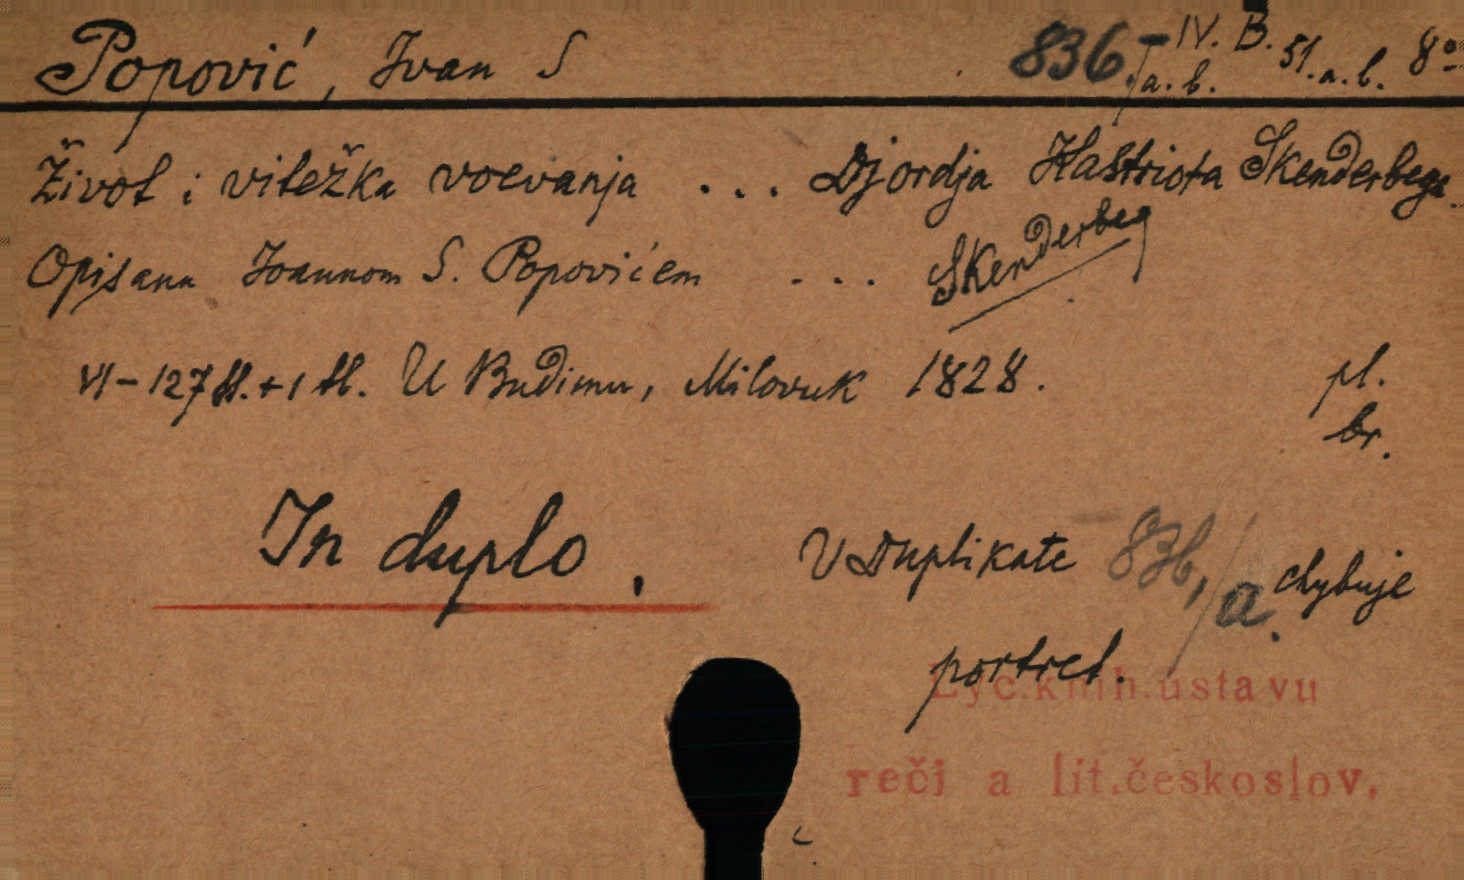 Popović, Ivan S 836. a. b. - IV. B. 51. a. b. 8°
Život i vitežka voevanja ... Djordja Kastriota Skenderbega.
Opisana Ioannom S. Popovićem ... Skenderbeg
VI - 127 ss. + 1 sl. U Budimu, Milovuk 1828. pl.
br.
In duplo. V Duplikate 836,/a. chybuje
portret.
Lyc.knih.ústavu
reči a lit.českoslov.